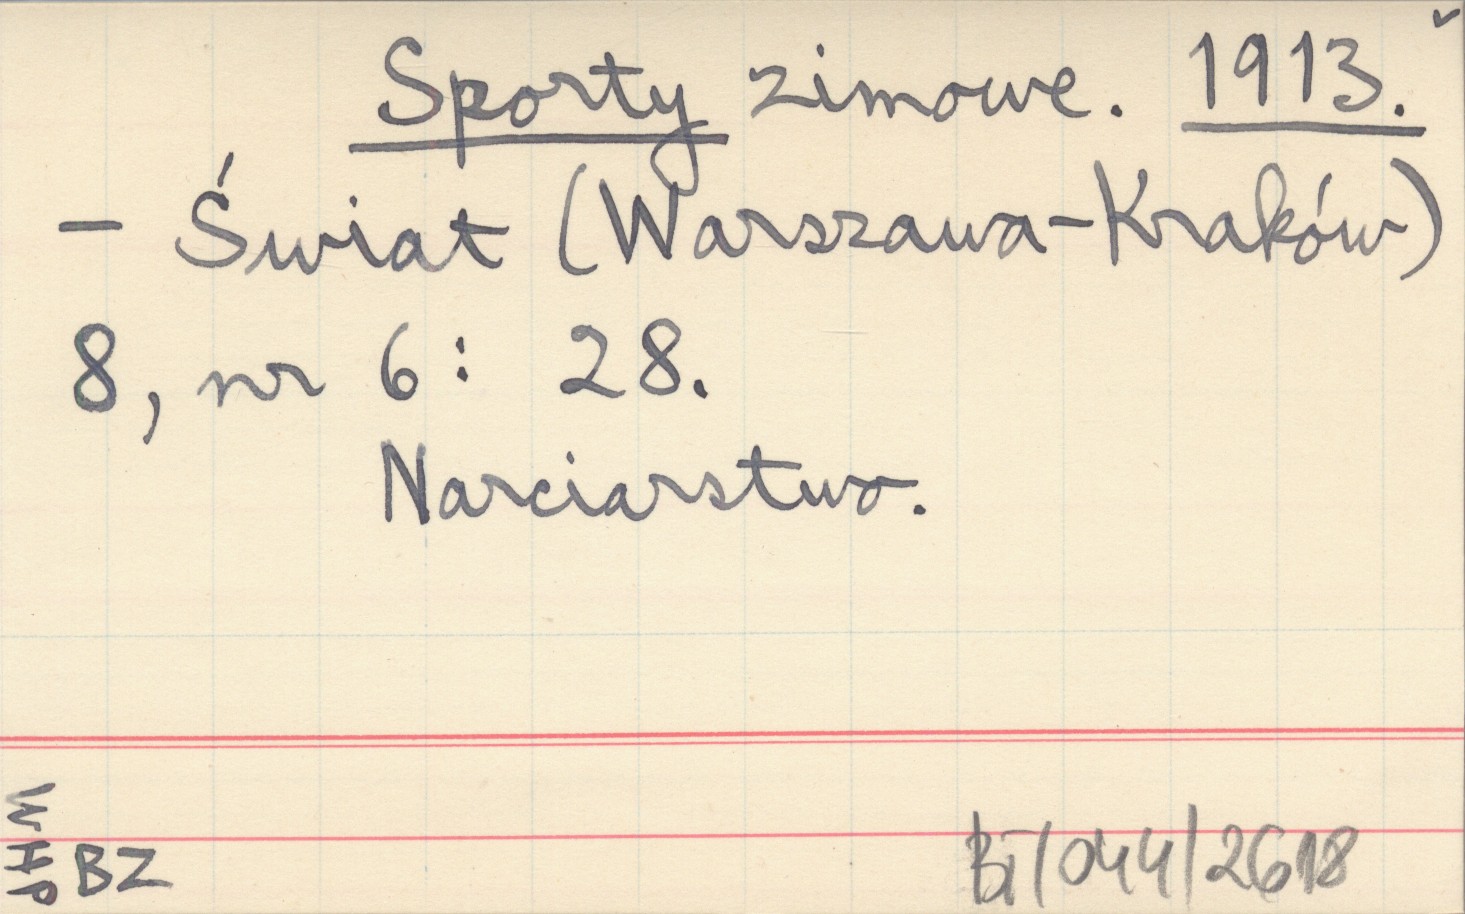 Sporty zimowe. 1913.
- Świat (Warszawa-Kraków)
8, nr 6: 28.
Narciarstwo.
WHP
BZ
BT/044/2618